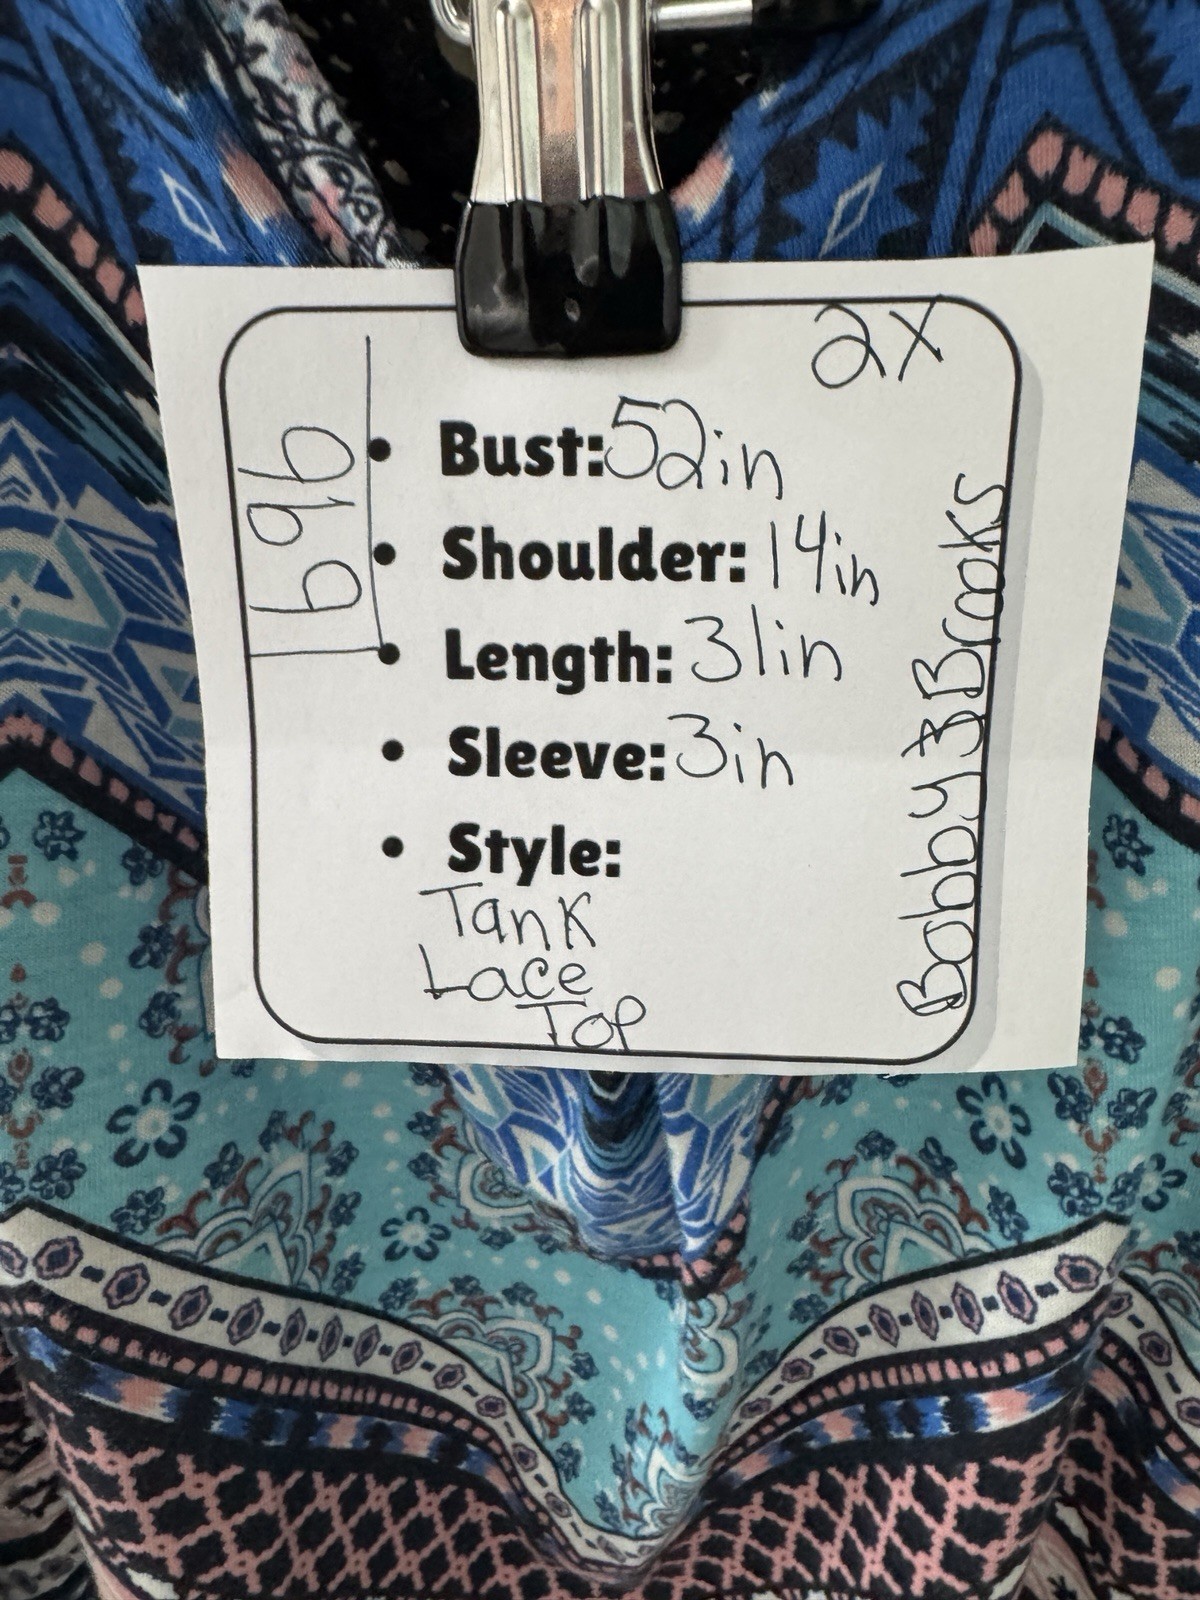 2X
Bust: 52in
Shoulder: 14in
Length: 31in
Sleeve: 3in
Style:
Tank
Lace
Top
Bobby Brooks